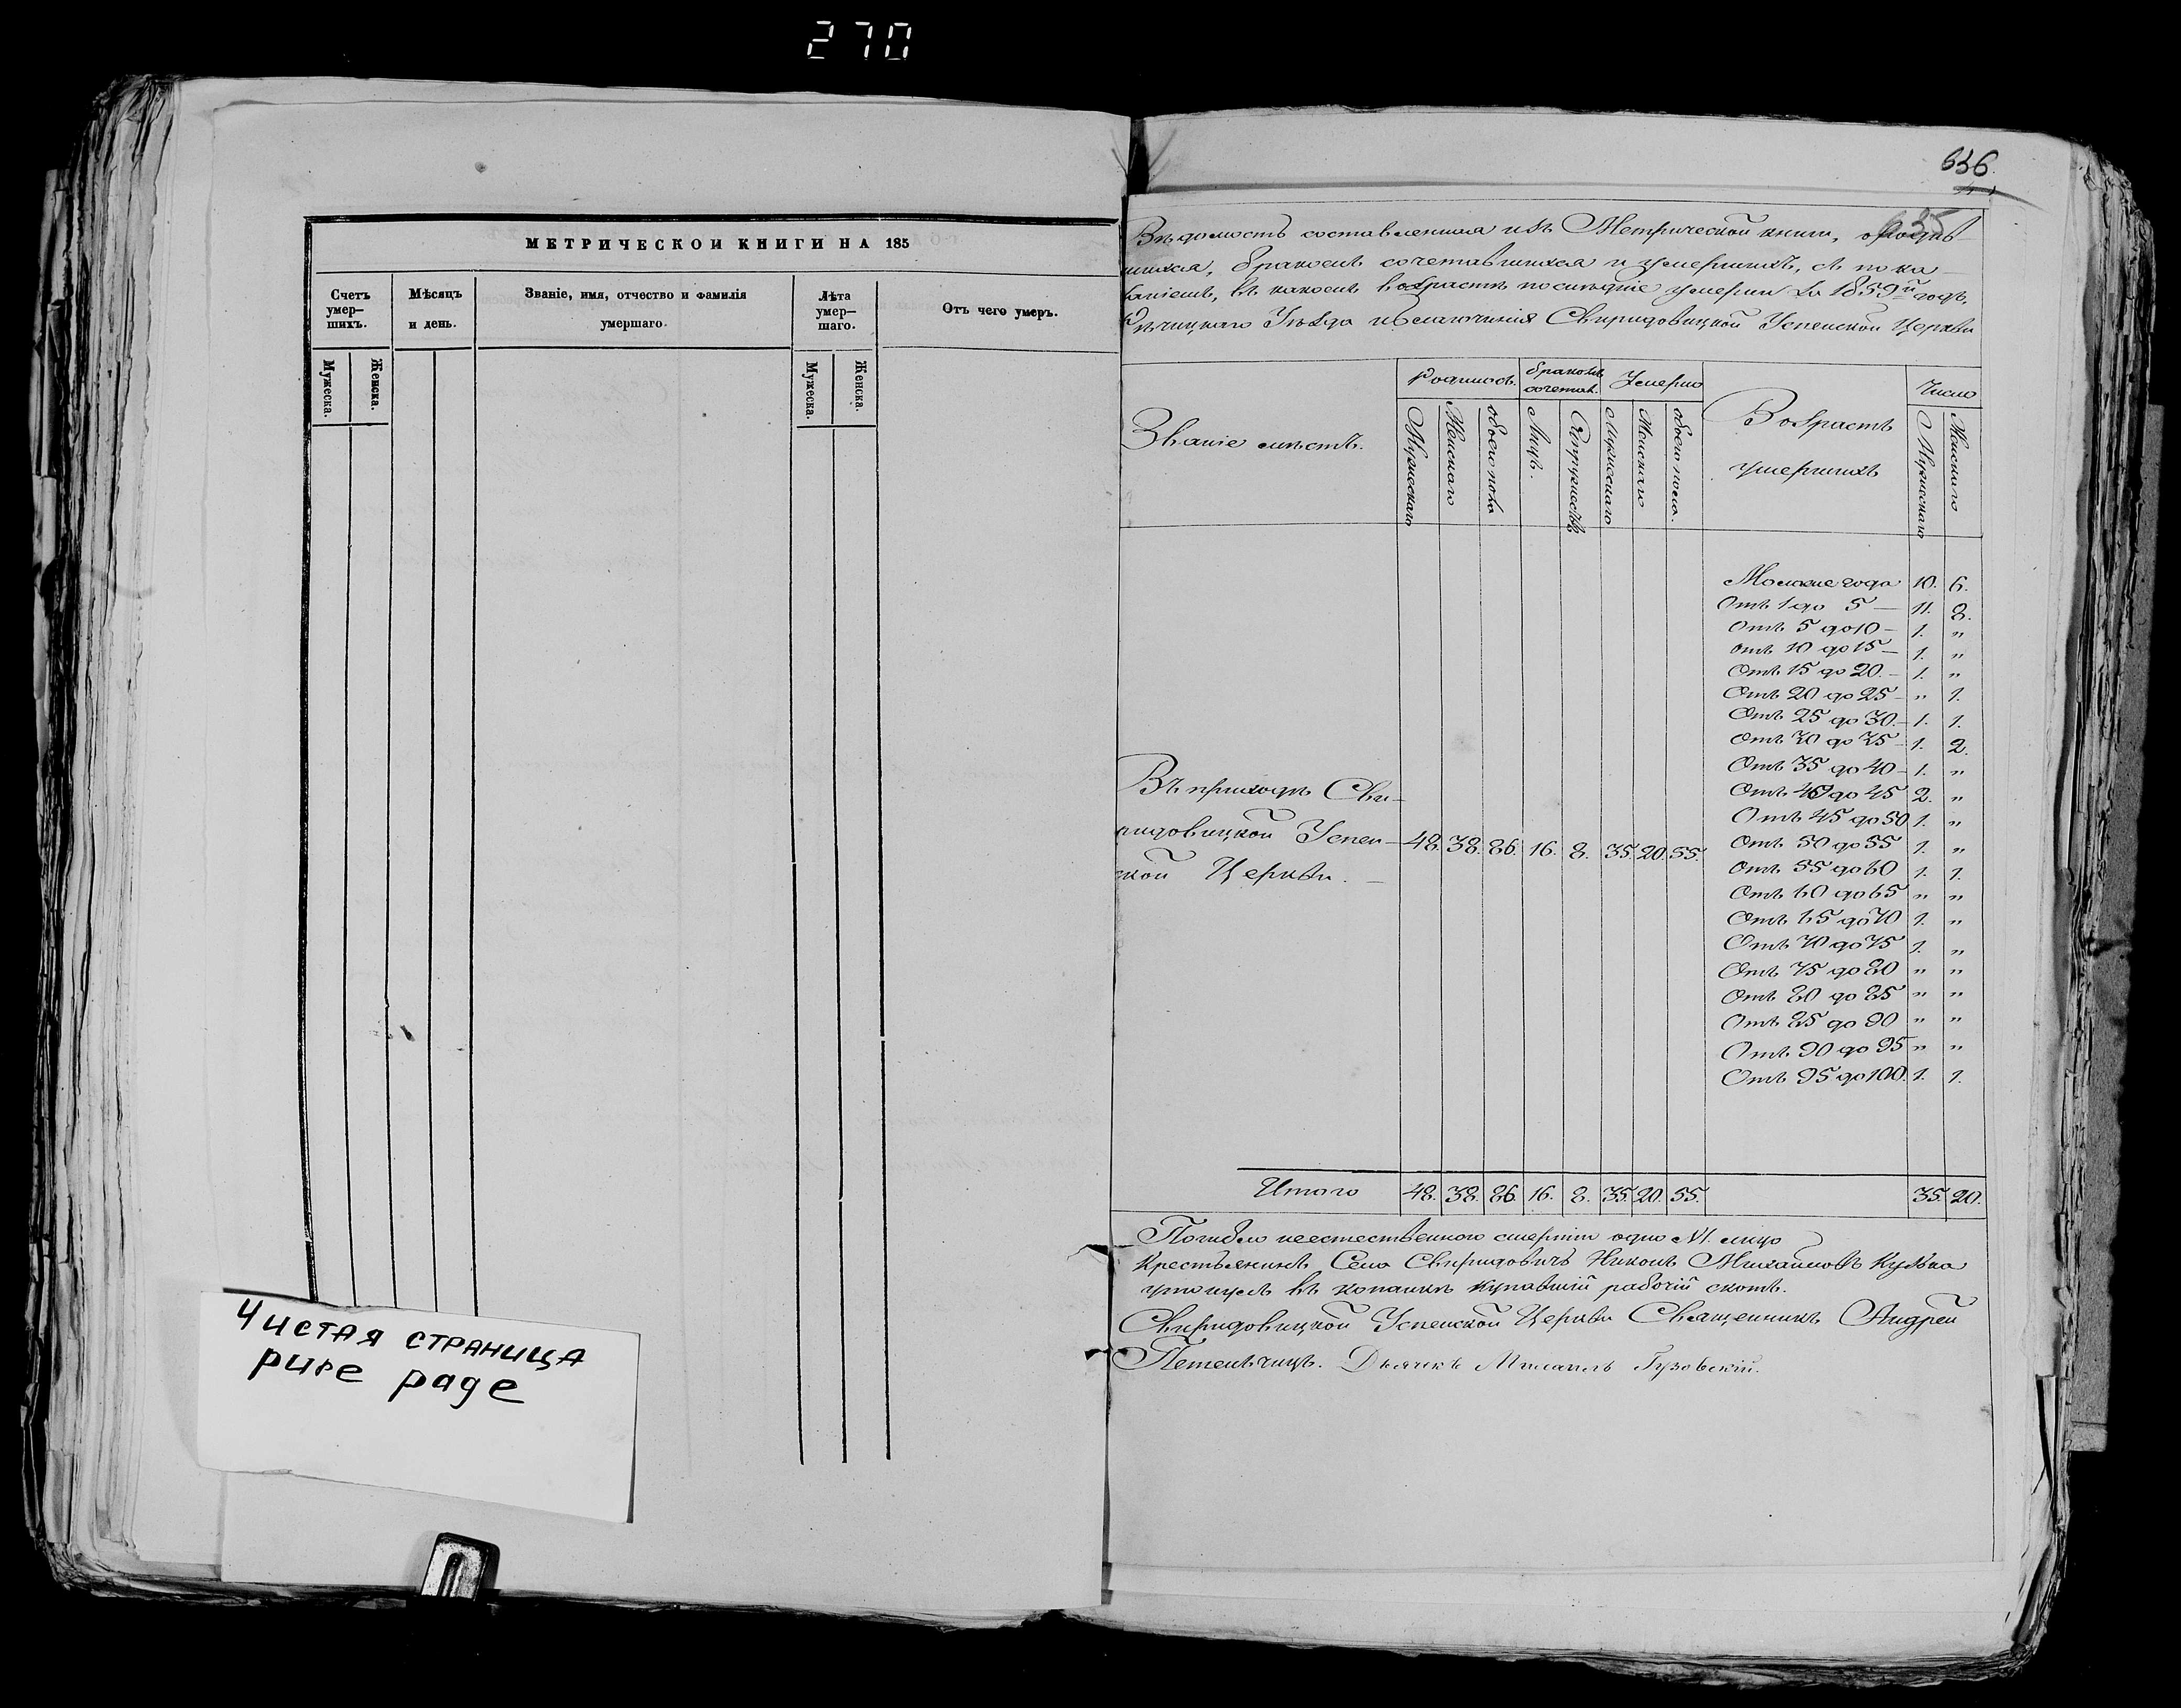 270
МЕТРИЧЕСКОЙ КНИГИ НА 185
Счетъ умер-шихъ.
Мѣсяцъ и день.
Званіе, имя, отчество и фамилія умершаго.
Лѣта умер-шаго.
Отъ чего умеръ.
Мужеска.
Женска.
Мужеска.
Женска.
Чистая страница
pure page
636.
635
Вѣдомость составленная изъ Метрической книги, о родив-
шихся, бракомъ сочетавшихся и умершихъ, съ пока
заніемъ, въ какомъ возрастѣ послѣдніе умерли за 1859й годъ,
Рѣчицкаго Уѣзда Благочинія Свиридовицкой Успенской Церкви
Званіе мѣстъ.
Родилось.
бракомъ сочетав.
Умерло
Возрастъ умершихъ
Число
Мужескаго
Женскаго
обоего пола
Лицъ.
Супружествъ
Мужескаго
Женскаго
обоего пола.
Мужескаго
Женскаго
Моложе года 10. 6.
Отъ 1 до 5 — 11. 8.
Отъ 5 до 10 — 1. "
Отъ 10 до 15 — 1. "
Отъ 15 до 20. — 1. "
Отъ 20 до 25 — " 1.
Отъ 25 до 30. — 1. 1.
Отъ 30 до 35 — 1. 2.
Отъ 35 до 40 — 1. "
Отъ 40 до 45 2. "
Отъ 45 до 50 1. "
Отъ 50 до 55 1. "
Отъ 55 до 60 1. 1.
Отъ 60 до 65 " "
Отъ 65 до 70 1. "
Отъ 70 до 75 1. "
Отъ 75 до 80 " "
Отъ 80 до 85 " "
Отъ 85 до 90 " "
Отъ 90 до 95 " "
Отъ 95 до 100. 1. 1.
Въ приходѣ Сви-
ридовицкой Успен-
ской Церкви. —
48. 38. 86. 16. 8. 35. 20. 55.
Итого 48. 38. 86. 16. 8. 35. 20. 55. 35. 20.
Погибло неестественною смертію одно М. лицо
Крестьянинъ Села Свиридовичъ Никонъ Михайловъ
утонулъ въ копанкѣ купавшій рабочій скотъ.
Свиридовицкой Успенской Церкви Священникъ Андрей
Дьячекъ Михаилъ Гузовскій.